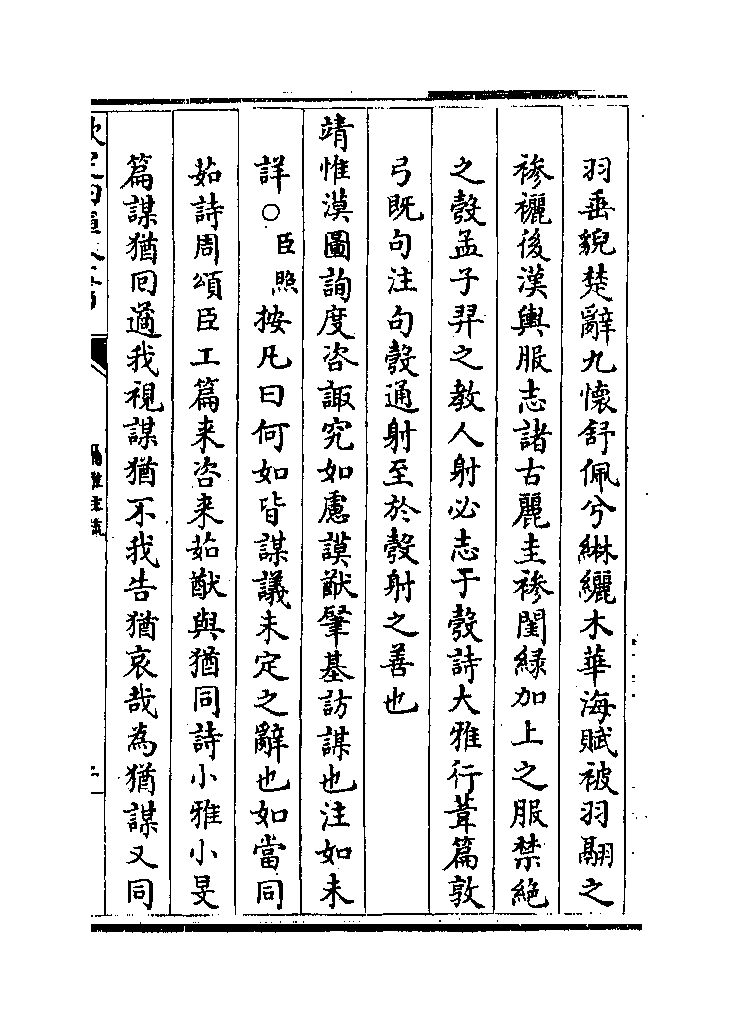 羽垂貎楚辭九懷舒佩兮綝纚木華海賦被羽翮之
襂襹後漢輿服志諸古麗圭襂閨緑加上之服禁絶
之彀孟子羿之教人射必志于彀詩大雅行葦篇敦
弓既句注句彀通射至於彀射之善也
靖惟漠圖詢度咨諏究如慮謨猷肇基訪謀也注如未
詳○臣照按凡曰何如皆謀議未定之辭也如當同
茹詩周頌臣工篇来咨来茹猷與猶同詩小雅小旻
篇謀猶回遹我視謀猶不我告猶哀哉為猶謀又同